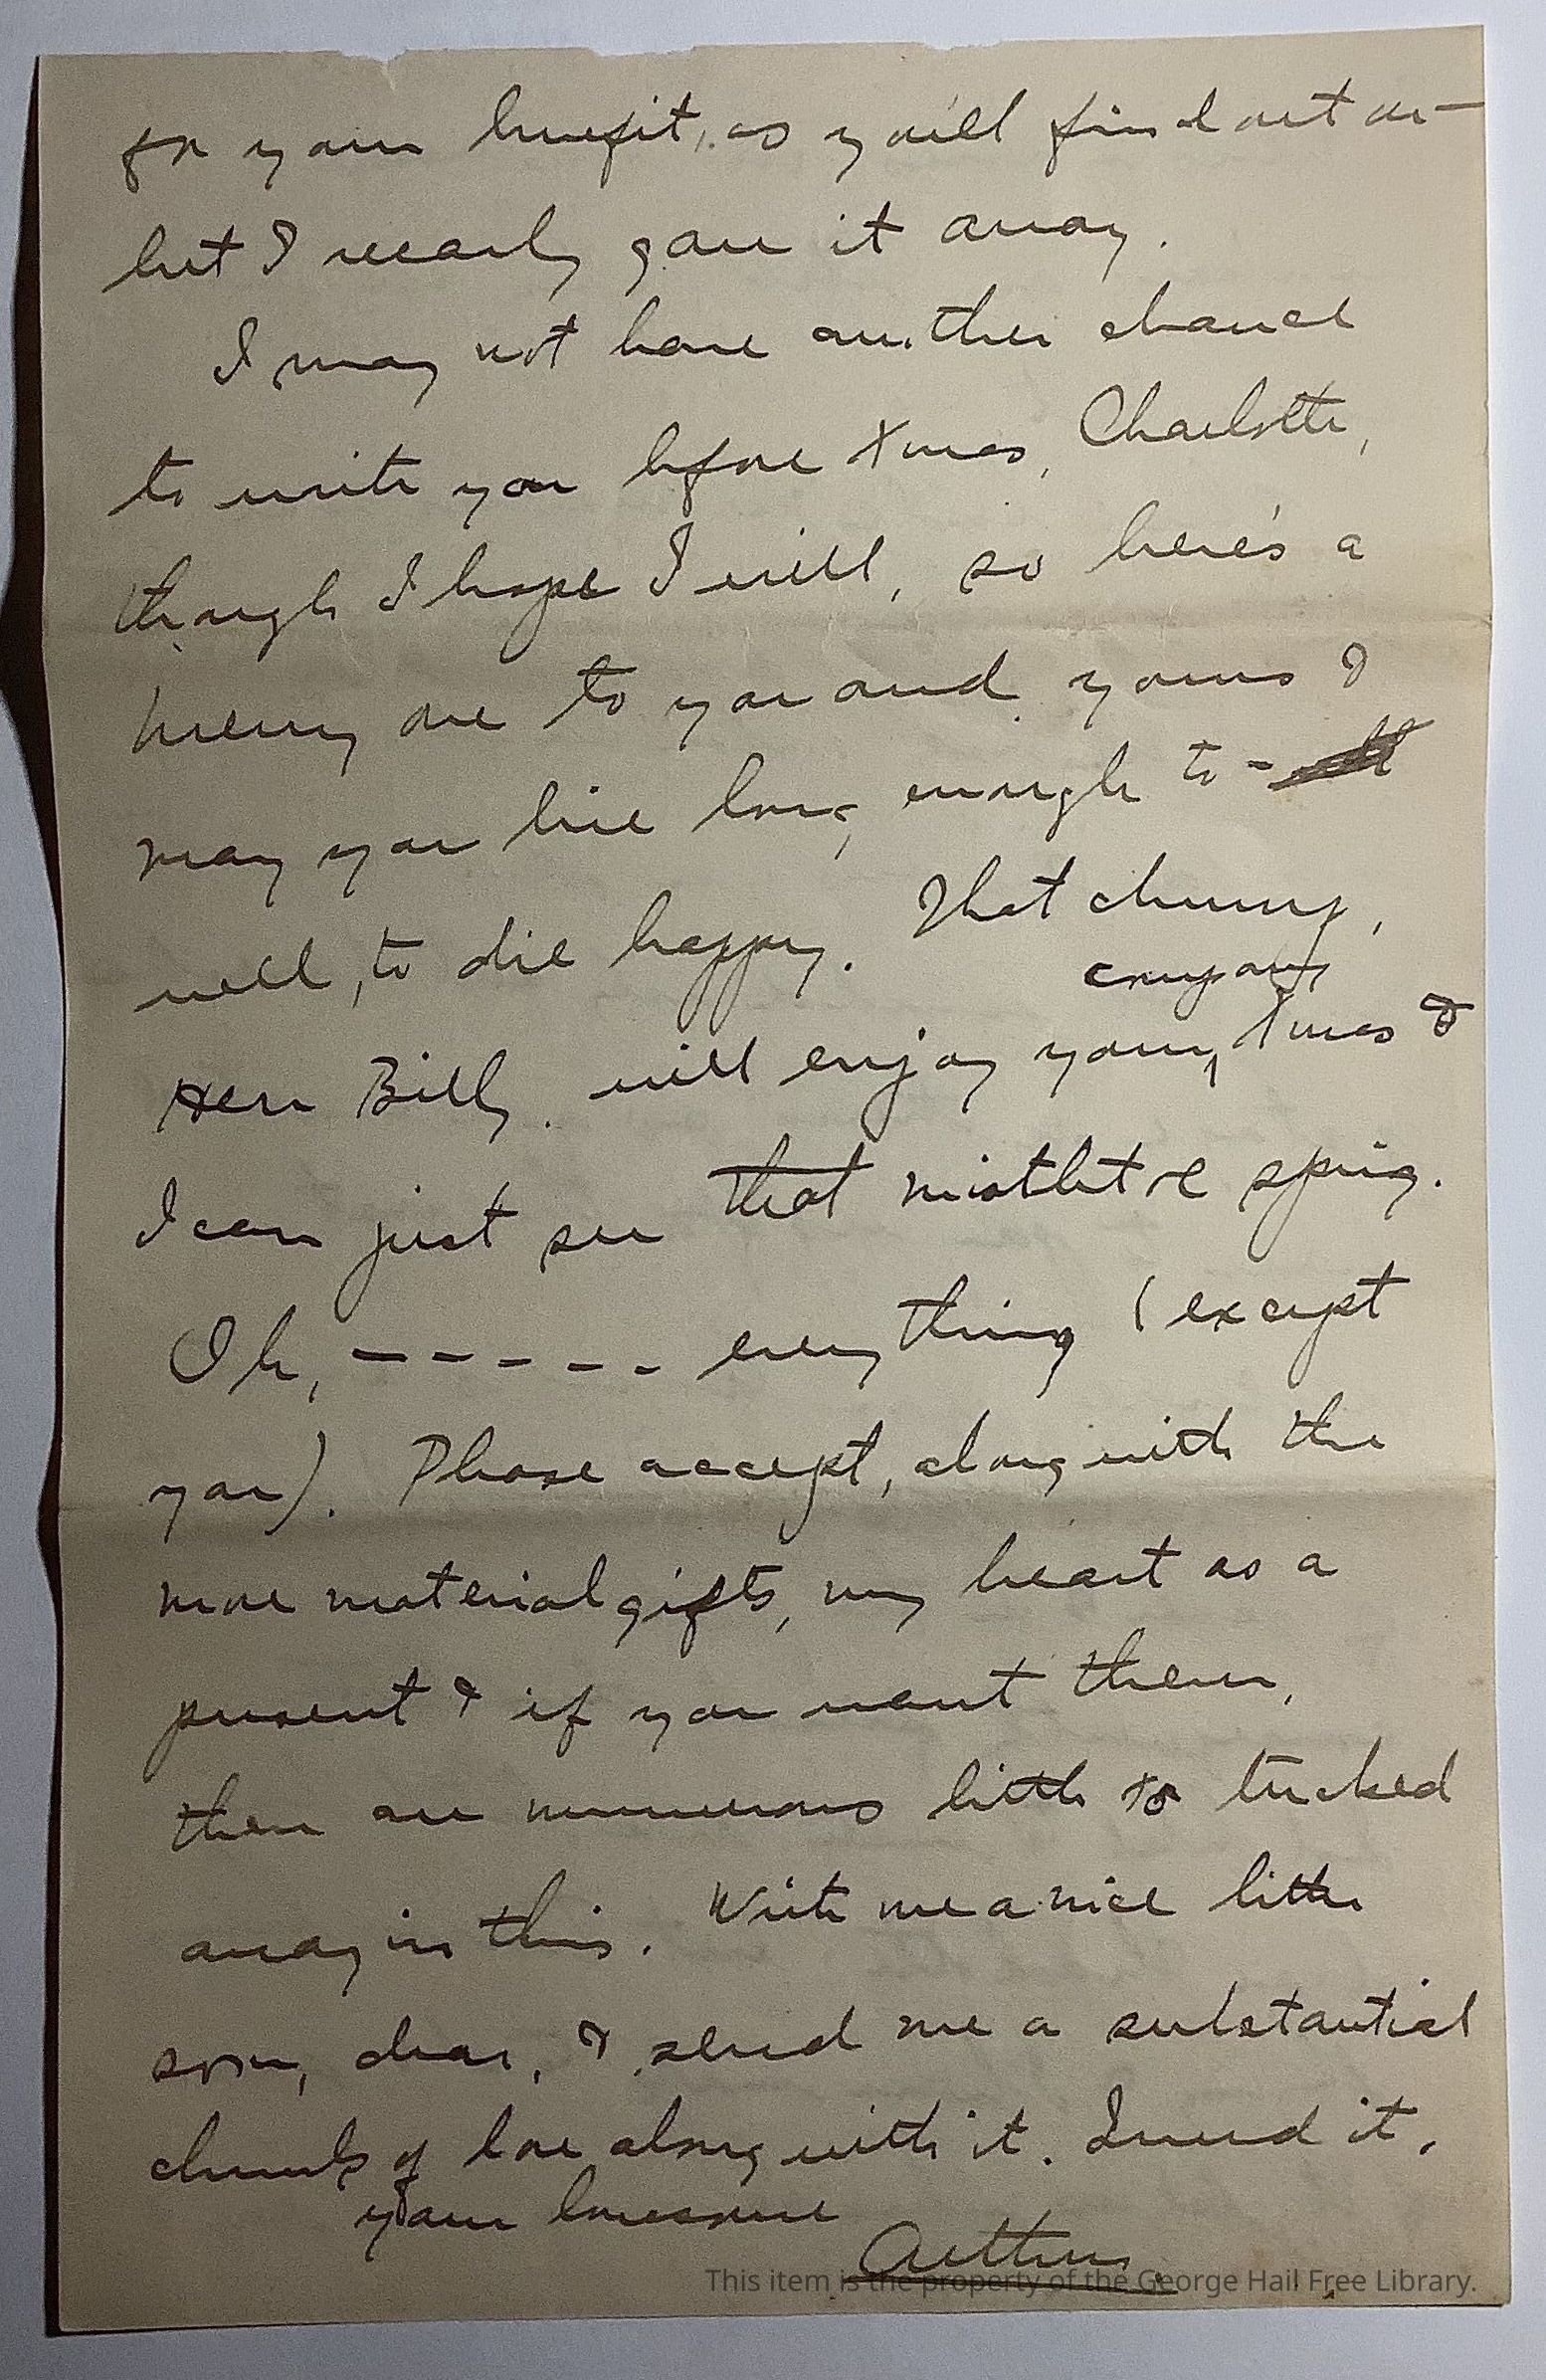 for your benefit, as you'll find out or—
but I nearly gave it away.
I may not have another chance
to write you before Xmas, Charlotte,
though I hope I will, so here's a
merry one to you and yours &
may you live long enough to -
well, to die happy. That chump,
company
Herr Billy. will enjoy your Xmas &
I can just see that mistletoe sprig.
Oh, - - - - - - everything (except
you). Please accept, along with the
more material gifts, my heart as a
present & if you want them,
there are numerous little xs tucked
away in this. Write me a nice letter
soon, dear, & send me a substantial
chunk of love along with it. I need it.
your lonesome
Arthur.
This item is the property of the George Hail Free Library.